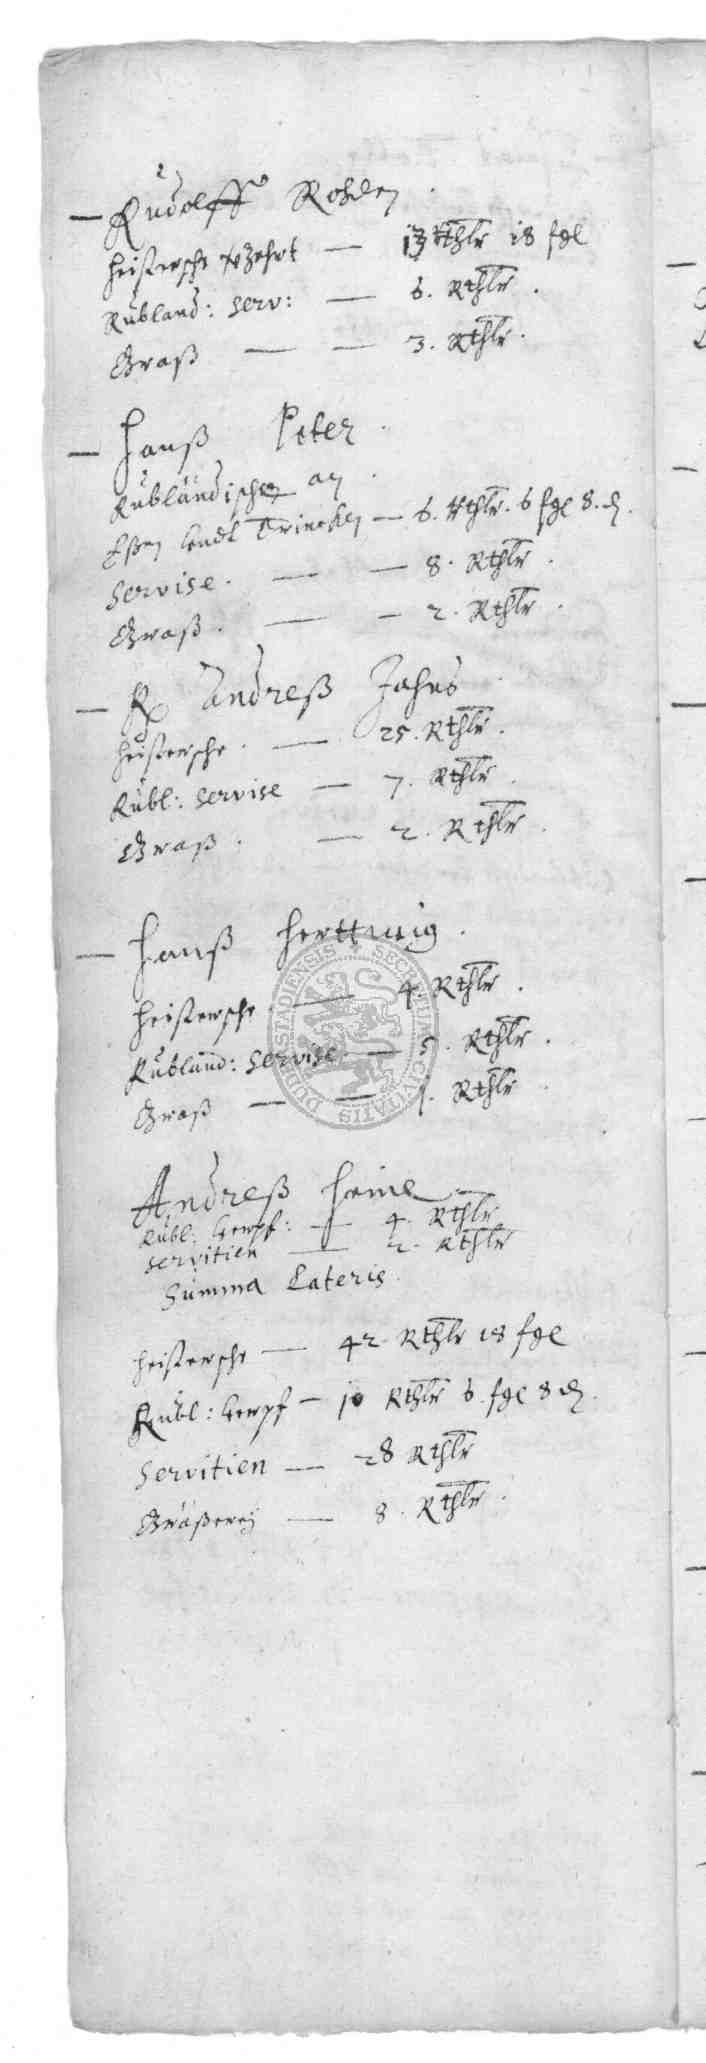 – Rudolff Rohden.
Heistersche Verzehrt — 13 Rthlr 18 fgl
Rübland: Serv: — 6. Rthlr.
Graß — — 3. Rthlr.
– Hanß Peter.
Rübländische an.
Eßen undt Trincken — 6. Rthlr. 6 fgl 8. d.
Servise. — — 8. Rthlr.
Graß. — — 2. Rthlr.
– Andreß Jahns.
Heistersche. — 25. Rthlr.
Rübl: Servise — 7. Rthlr.
Graß. — 2. Rthlr.
– Hanß Herttwig.
Heistersche. — 4. Rthlr.
Rübland: Servise. — 5. Rthlr.
Graß — — 1. Rthlr.
Andreß Heine
Rübl: — 4. Rthlr
Servitien — 2. Rthlr
Summa Lateris.
Heistersche — 42 Rthlr 18 fgl
Rübl: — 10 Rthlr 6. fgl 8 d.
Servitien — 28 Rthlr
Gräßerey — 8. Rthlr.
SECRETUM CIVITATIS DUDERSTADIENSIS